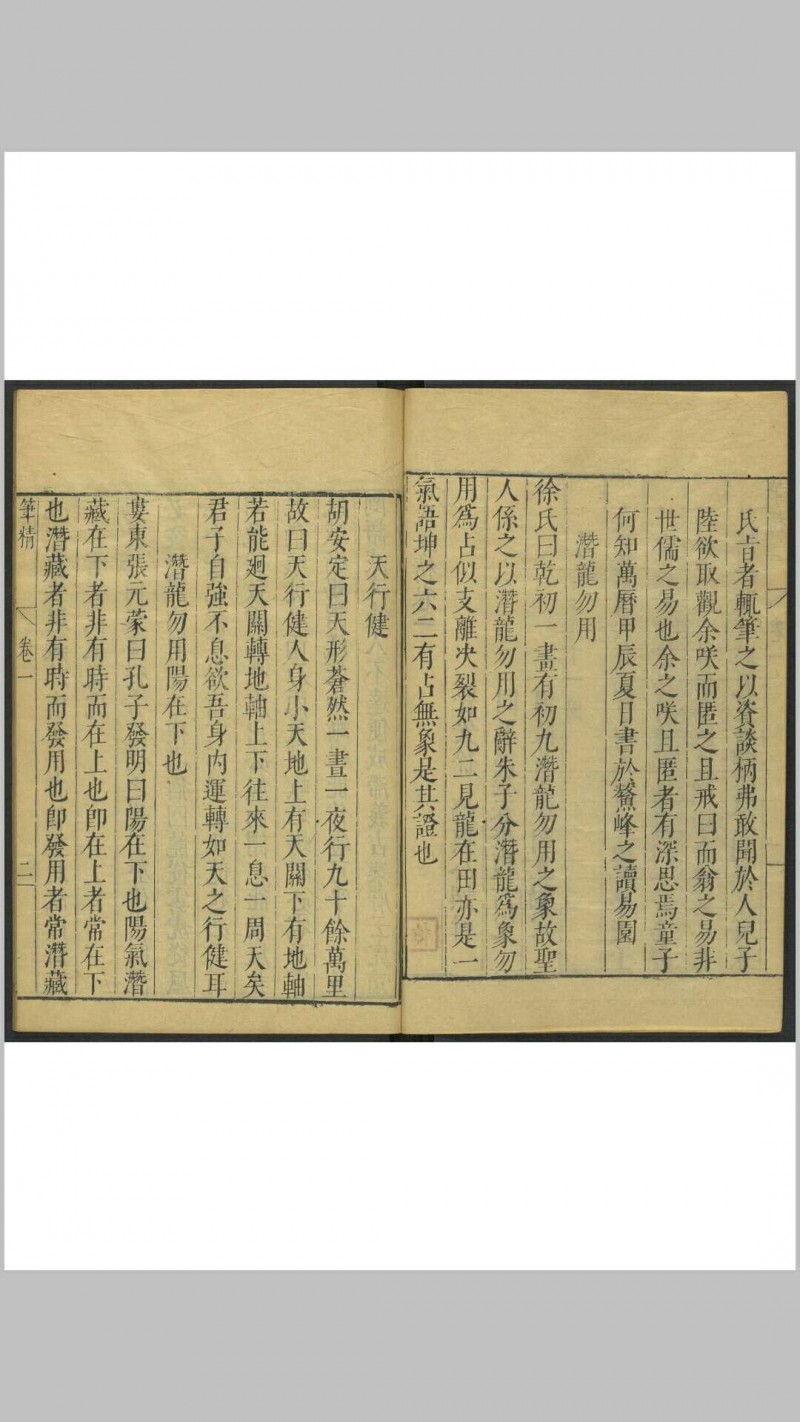 氏旨者輒筆之以資談柄弗敢聞於人兒子
陸欲取觀余咲而匿之且戒曰而翁之易非
世儒之易也余之咲且匿者有深思焉童子
何知萬曆甲辰夏日書於鰲峰之讀易園
潛龍勿用
徐氏曰乾初一畫有初九潛龍勿用之象故聖
人係之以潛龍勿用之辭朱子分潛龍爲象勿
用爲占似支離决裂如九二見龍在田亦是一
氣語坤之六二有占無象是其證也
天行健
胡安定曰天形蒼然一晝一夜行九十餘萬里
故曰天行健人身小天地上有天關下有地軸
若能廻天關轉地軸上下往來一息一周天矣
君子自強不息欲吾身内運轉如天之行健耳
潛龍勿用陽在下也
婁東張元蒙曰孔子發明曰陽在下也陽氣潛
藏在下者非有時而在上也卽在上者常在下
也潛藏者非有時而發用也卽發用者常潛藏
筆精 卷一 二